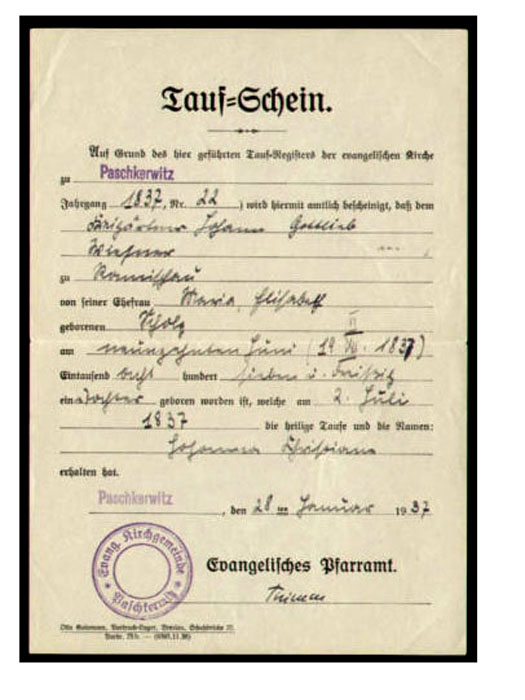 Tauf=Schein.
Auf Grund des hier geführten Tauf=Registers der evangelischen Kirche
zu Paschkerwitz
Jahrgang 1837, Nr. 22 ) wird hiermit amtlich bescheinigt, daß dem
Freigärtner Johann Gottlieb
zu
von seiner Ehefrau Maria, Elisabeth
geborenen Scholz
am neunzehnten Juni ( 19. VI. 1837 )
Eintausend acht hundert sieben u. dreißig
eine Tochter geboren worden ist, welche am 2. Juli
1837 die heilige Taufe und die Namen:
Johanna Christiane
erhalten hat.
Paschkerwitz, den 28 ten Januar 1937
Evang. Kirchgemeinde
Paschkerwitz
Evangelisches Pfarramt.